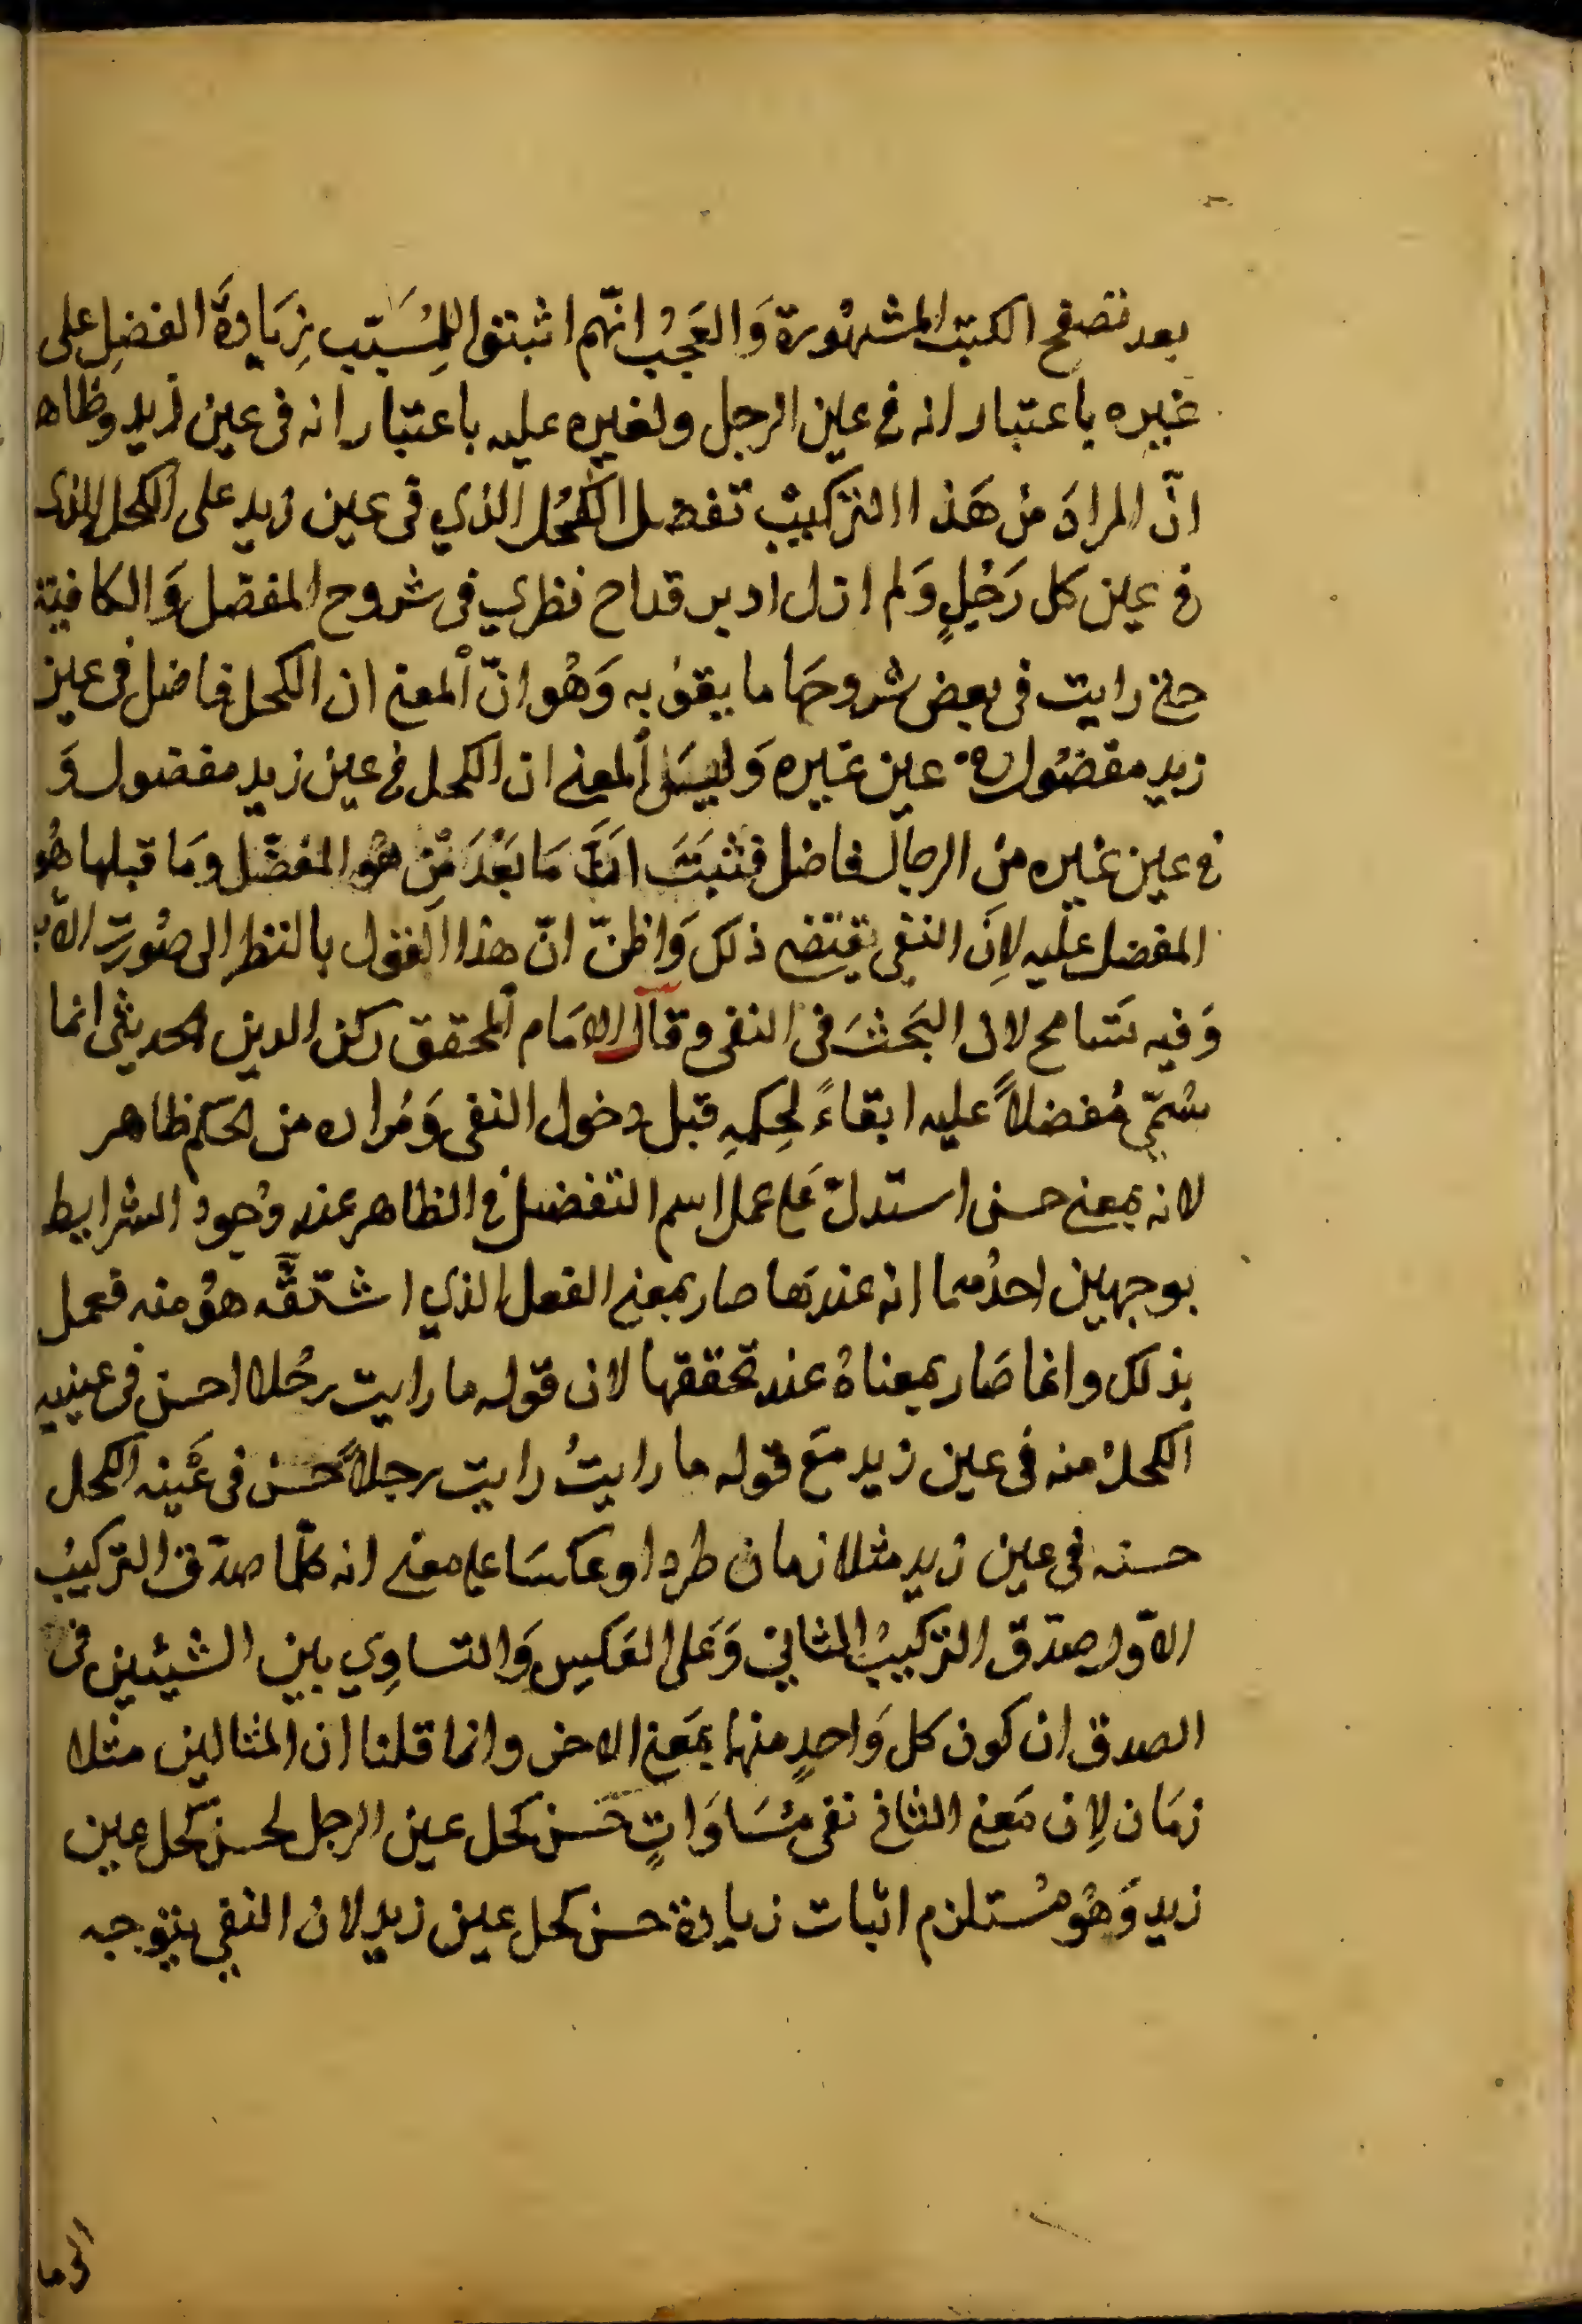 بعد تصفح الكتب المشهورة وَالعَجَبُ انّهم اثبتوا لِلمُسَبّب زِيَادةَ الفضلِ على
غيره باعتبار انه في عين الرجل ولغيره عليه باعتبار انه فى عين زيد وظاه
انّ المرادَ من هَذا التركيب تفضيل الكُحُل الذي فى عين زيد على الكحل الذى
في عين كل رَجُلٍ وَلم ازل ادير قداح نظري فى شروح المفصل وَالكافية
حتي رايت فى بعض شروحهَا ما يقوي به وَهُو انّ المعني ان الكحل فاضل فى عين
زيد مفضُول في عين غَيره وَليسَ المعني ان الكحل في عين زيد مفضول وَ
في عين غيره مِن الرجال فاضل فثبَتَ انَّ مَا بَعْدَ مِّن هو المفضّل ومَا قبلها هُو
المفضل عليه لاِنَ النفى يقتضي ذلك وَاظنّ انّ هذا القول بالنظر الى صُورت الاثب
وَفيه تسَامح لان البَحثَ فى النفى وقال الامَام المحقق ركن الدين الحديثى انما
سُمّي مُفضلاً عليه ابقاءً لِحكمِهِ قبل دخول النفى وَمُراده من الحكم ظاهر
لانه بمعني حسن استدلّ عَلي عمل اسم التفضيل في الظاهر عند وُجود الشرايط
بوجهين احدُهما انه عندهَا صار بمعني الفعل الذي اشتقَّه هوُ منه فعمل
بذلك وانما صَار بمعناهُ عند تحققها لان قوله ما رايت رجُلا احسن فى عينيه
الكحلُ منه فى عين زيد مَع قوله ما رايتُ رايت رجلاً حسن فى عَينه الكحل
حسنه فى عين زيد متلازمان طردا وعكسَا علي معني انه كلّما صدَق التركيبُ
الاوّل صدَق التركيبُ الثاني وَعَلى العَكسِ وَالتساوِي بين الشيئين فى
الصدق ان كون كل وَاحدٍ منهما بمَعني الاخر وانما قلنا ان المثالين متلا
زمَان لاِن مَعني الثاني نفى مُسَاوَاتٍ حسن كحل عين الرجل لحسن كحل عين
زيد وَهُو مُستلزم اثبات زيادة حسن كحل عين زيد لان النفي يتوجه
الى ما